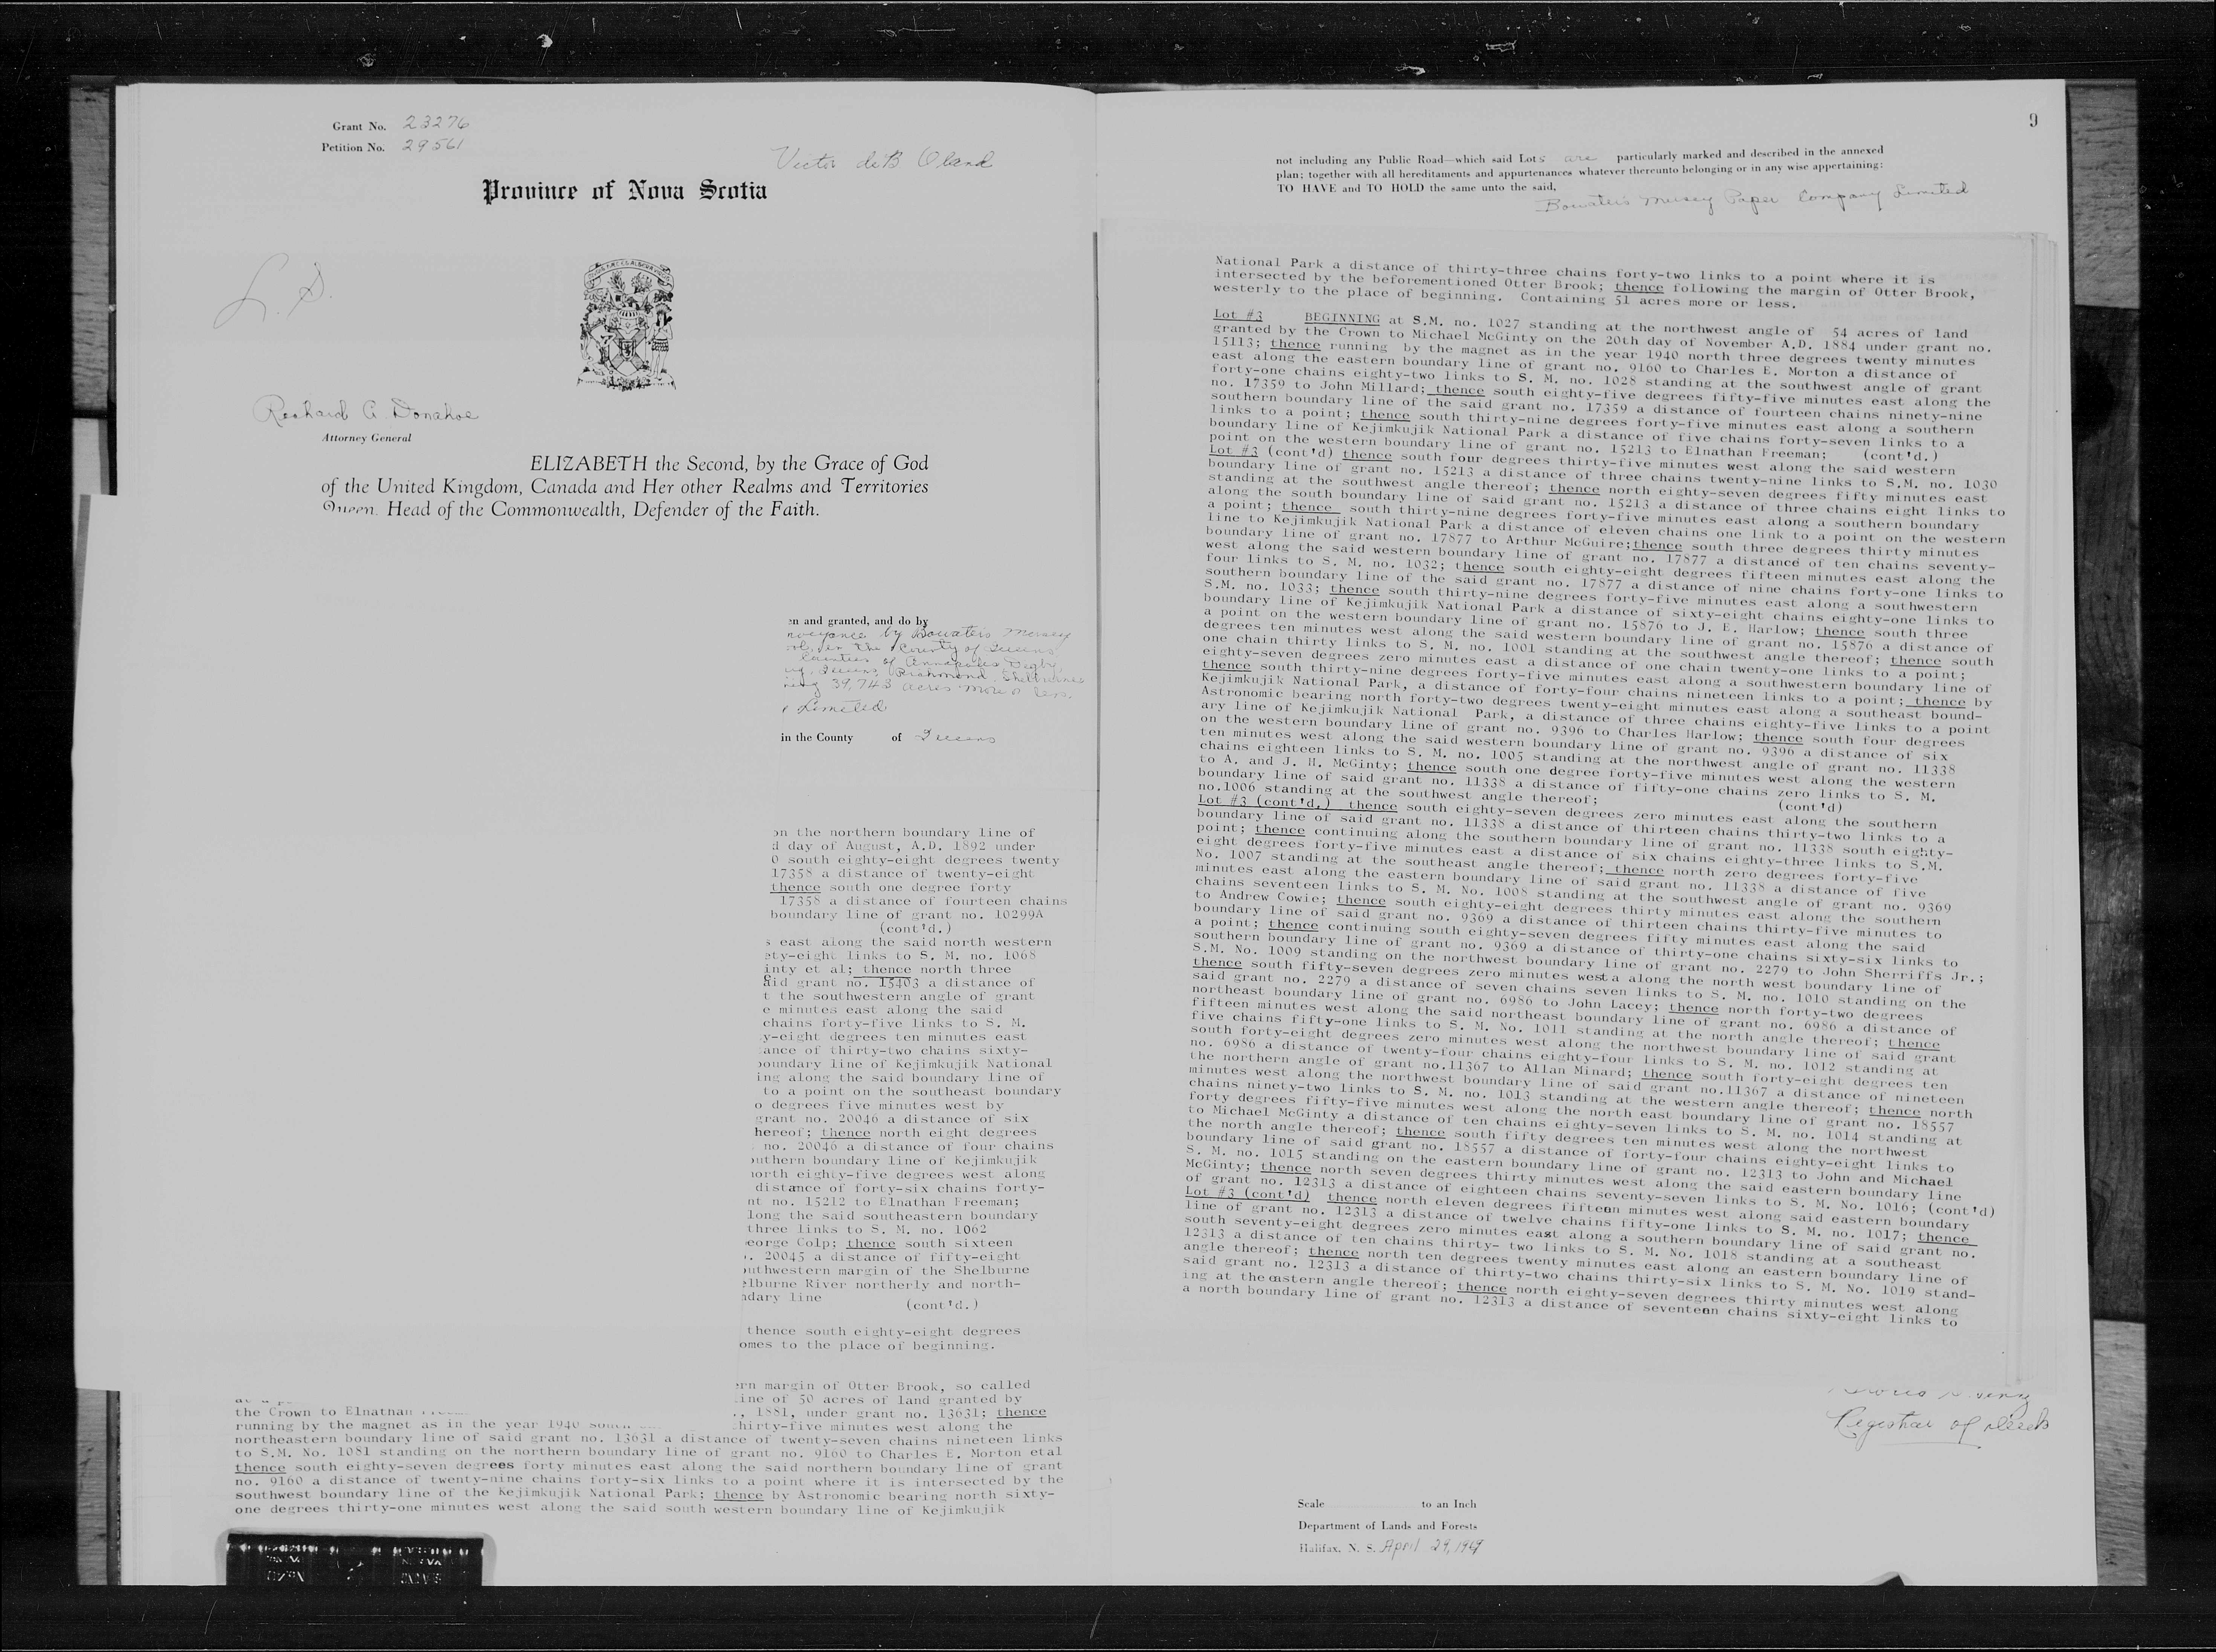 Grant No. 23276
Petition No. 29561
Victor deB Oland
Province of Nova Scotia
L. S.
Richard A. Donahoe
Attorney General
ELIZABETH the Second, by the Grace of God
of the United Kingdom, Canada and Her other Realms and Territories
Queen, Head of the Commonwealth, Defender of the Faith.
en and granted, and do by
nveyance by Bowaters Mersey
in the County of Queens
Counties of Annapolis Digby,
Queens, Richmond, Shelburne
39,743 acres more or less.
Limited
in the County of Queens
on the northern boundary line of
d day of August, A.D. 1892 under
0 south eighty-eight degrees twenty
17358 a distance of twenty-eight
thence south one degree forty
17358 a distance of fourteen chains
boundary line of grant no. 10299A
(cont'd.)
s east along the said north western
ety-eight links to S. M. no. 1068
inty et al; thence north three
said grant no. 15403 a distance of
t the southwestern angle of grant
e minutes east along the said
chains forty-five links to S. M.
y-eight degrees ten minutes east
ance of thirty-two chains sixty-
boundary line of Kejimkujik National
ing along the said boundary line of
to a point on the southeast boundary
o degrees five minutes west by
grant no. 20046 a distance of six
hereof; thence north eight degrees
no. 20046 a distance of four chains
outhern boundary line of Kejimkujik
north eighty-five degrees west along
distance of forty-six chains forty-
nt no. 15212 to Elnathan Freeman;
long the said southeastern boundary
three links to S. M. no. 1062
eorge Colp; thence south sixteen
. 20045 a distance of fifty-eight
outhwestern margin of the Shelburne
elburne River northerly and north-
ndary line (cont'd.)
thence south eighty-eight degrees
omes to the place of beginning.
ern margin of Otter Brook, so called
line of 50 acres of land granted by
the Crown to Elnathan ., 1881, under grant no. 13631; thence
running by the magnet as in the year 1940 south thirty-five minutes west along the
northeastern boundary line of said grant no. 13631 a distance of twenty-seven chains nineteen links
to S.M. No. 1081 standing on the northern boundary line of grant no. 9160 to Charles E. Morton etal
thence south eighty-seven degrees forty minutes east along the said northern boundary line of grant
no. 9160 a distance of twenty-nine chains forty-six links to a point where it is intersected by the
southwest boundary line of the Kejimkujik National Park; thence by Astronomic bearing north sixty-
one degrees thirty-one minutes west along the said south western boundary line of Kejimkujik
9
not including any Public Road—which said Lots are particularly marked and described in the annexed
plan; together with all hereditaments and appurtenances whatever thereunto belonging or in any wise appertaining:
TO HAVE and TO HOLD the same unto the said,
Bowaters Mersey Paper Company Limited
National Park a distance of thirty-three chains forty-two links to a point where it is
intersected by the beforementioned Otter Brook; thence following the margin of Otter Brook,
westerly to the place of beginning. Containing 51 acres more or less.
Lot #3 BEGINNING at S.M. no. 1027 standing at the northwest angle of 54 acres of land
granted by the Crown to Michael McGinty on the 20th day of November A.D. 1884 under grant no.
15113; thence running by the magnet as in the year 1940 north three degrees twenty minutes
east along the eastern boundary line of grant no. 9160 to Charles E. Morton a distance of
forty-one chains eighty-two links to S. M. no. 1028 standing at the southwest angle of grant
no. 17359 to John Millard; thence south eighty-five degrees fifty-five minutes east along the
southern boundary line of the said grant no. 17359 a distance of fourteen chains ninety-nine
links to a point; thence south thirty-nine degrees forty-five minutes east along a southern
boundary line of Kejimkujik National Park a distance of five chains forty-seven links to a
point on the western boundary line of grant no. 15213 to Elnathan Freeman; (cont'd.)
Lot #3 (cont'd) thence south four degrees thirty-five minutes west along the said western
boundary line of grant no. 15213 a distance of three chains twenty-nine links to S.M. no. 1030
standing at the southwest angle thereof; thence north eighty-seven degrees fifty minutes east
along the south boundary line of said grant no. 15213 a distance of three chains eight links to
a point; thence south thirty-nine degrees forty-five minutes east along a southern boundary
line to Kejimkujik National Park a distance of eleven chains one link to a point on the western
boundary line of grant no. 17877 to Arthur McGuire;thence south three degrees thirty minutes
west along the said western boundary line of grant no. 17877 a distance of ten chains seventy-
four links to S. M. no. 1032; thence south eighty-eight degrees fifteen minutes east along the
southern boundary line of the said grant no. 17877 a distance of nine chains forty-one links to
S.M. no. 1033; thence south thirty-nine degrees forty-five minutes east along a southwestern
boundary line of Kejimkujik National Park a distance of sixty-eight chains eighty-one links to
a point on the western boundary line of grant no. 15876 to J. E. Harlow; thence south three
degrees ten minutes west along the said western boundary line of grant no. 15876 a distance of
one chain thirty links to S. M. no. 1001 standing at the southwest angle thereof; thence south
eighty-seven degrees zero minutes east a distance of one chain twenty-one links to a point;
thence south thirty-nine degrees forty-five minutes east along a southwestern boundary line of
Kejimkujik National Park, a distance of forty-four chains nineteen links to a point; thence by
Astronomic bearing north forty-two degrees twenty-eight minutes east along a southeast bound-
ary line of Kejimkujik National Park, a distance of three chains eighty-five links to a point
on the western boundary line of grant no. 9396 to Charles Harlow; thence south four degrees
ten minutes west along the said western boundary line of grant no. 9396 a distance of six
chains eighteen links to S. M. no. 1005 standing at the northwest angle of grant no. 11338
to A. and J. H. McGinty; thence south one degree forty-five minutes west along the western
boundary line of said grant no. 11338 a distance of fifty-one chains zero links to S. M.
no.1006 standing at the southwest angle thereof; (cont'd)
Lot #3 (cont'd.) thence south eighty-seven degrees zero minutes east along the southern
boundary line of said grant no. 11338 a distance of thirteen chains thirty-two links to a
point; thence continuing along the southern boundary line of grant no. 11338 south eighty-
eight degrees forty-five minutes east a distance of six chains eighty-three links to S.M.
No. 1007 standing at the southeast angle thereof; thence north zero degrees forty-five
minutes east along the eastern boundary line of said grant no. 11338 a distance of five
chains seventeen links to S. M. No. 1008 standing at the southwest angle of grant no. 9369
to Andrew Cowie; thence south eighty-eight degrees thirty minutes east along the southern
boundary line of said grant no. 9369 a distance of thirteen chains thirty-five minutes to
a point; thence continuing south eighty-seven degrees fifty minutes east along the said
southern boundary line of grant no. 9369 a distance of thirty-one chains sixty-six links to
S.M. No. 1009 standing on the northwest boundary line of grant no. 2279 to John Sherriffs Jr.;
thence south fifty-seven degrees zero minutes westa along the north west boundary line of
said grant no. 2279 a distance of seven chains seven links to S. M. no. 1010 standing on the
northeast boundary line of grant no. 6986 to John Lacey; thence north forty-two degrees
fifteen minutes west along the said northeast boundary line of grant no. 6986 a distance of
five chains fifty-one links to S. M. No. 1011 standing at the north angle thereof; thence
south forty-eight degrees zero minutes west along the northwest boundary line of said grant
no. 6986 a distance of twenty-four chains eighty-four links to S. M. no. 1012 standing at
the northern angle of grant no.11367 to Allan Minard; thence south forty-eight degrees ten
minutes west along the northwest boundary line of said grant no.11367 a distance of nineteen
chains ninety-two links to S. M. no. 1013 standing at the western angle thereof; thence north
forty degrees fifty-five minutes west along the north east boundary line of grant no. 18557
to Michael McGinty a distance of ten chains eighty-seven links to S. M. no. 1014 standing at
the north angle thereof; thence south fifty degrees ten minutes west along the northwest
boundary line of said grant no. 18557 a distance of forty-four chains eighty-eight links to
S. M. no. 1015 standing on the eastern boundary line of grant no. 12313 to John and Michael
McGinty; thence north seven degrees thirty minutes west along the said eastern boundary line
of grant no. 12313 a distance of eighteen chains seventy-seven links to S. M. No. 1016; (cont'd)
Lot #3 (cont'd) thence north eleven degrees fifteen minutes west along said eastern boundary
line of grant no. 12313 a distance of twelve chains fifty-one links to S. M. no. 1017; thence
south seventy-eight degrees zero minutes east along a southern boundary line of said grant no.
12313 a distance of ten chains thirty- two links to S. M. No. 1018 standing at a southeast
angle thereof; thence north ten degrees twenty minutes east along an eastern boundary line of
said grant no. 12313 a distance of thirty-two chains thirty-six links to S. M. No. 1019 stand-
ing at the eastern angle thereof; thence north eighty-seven degrees thirty minutes west along
a north boundary line of grant no. 12313 a distance of seventeen chains sixty-eight links to
Registrar of Deeds
Scale to an Inch
Department of Lands and Forests
Halifax, N. S. April 29, 1969